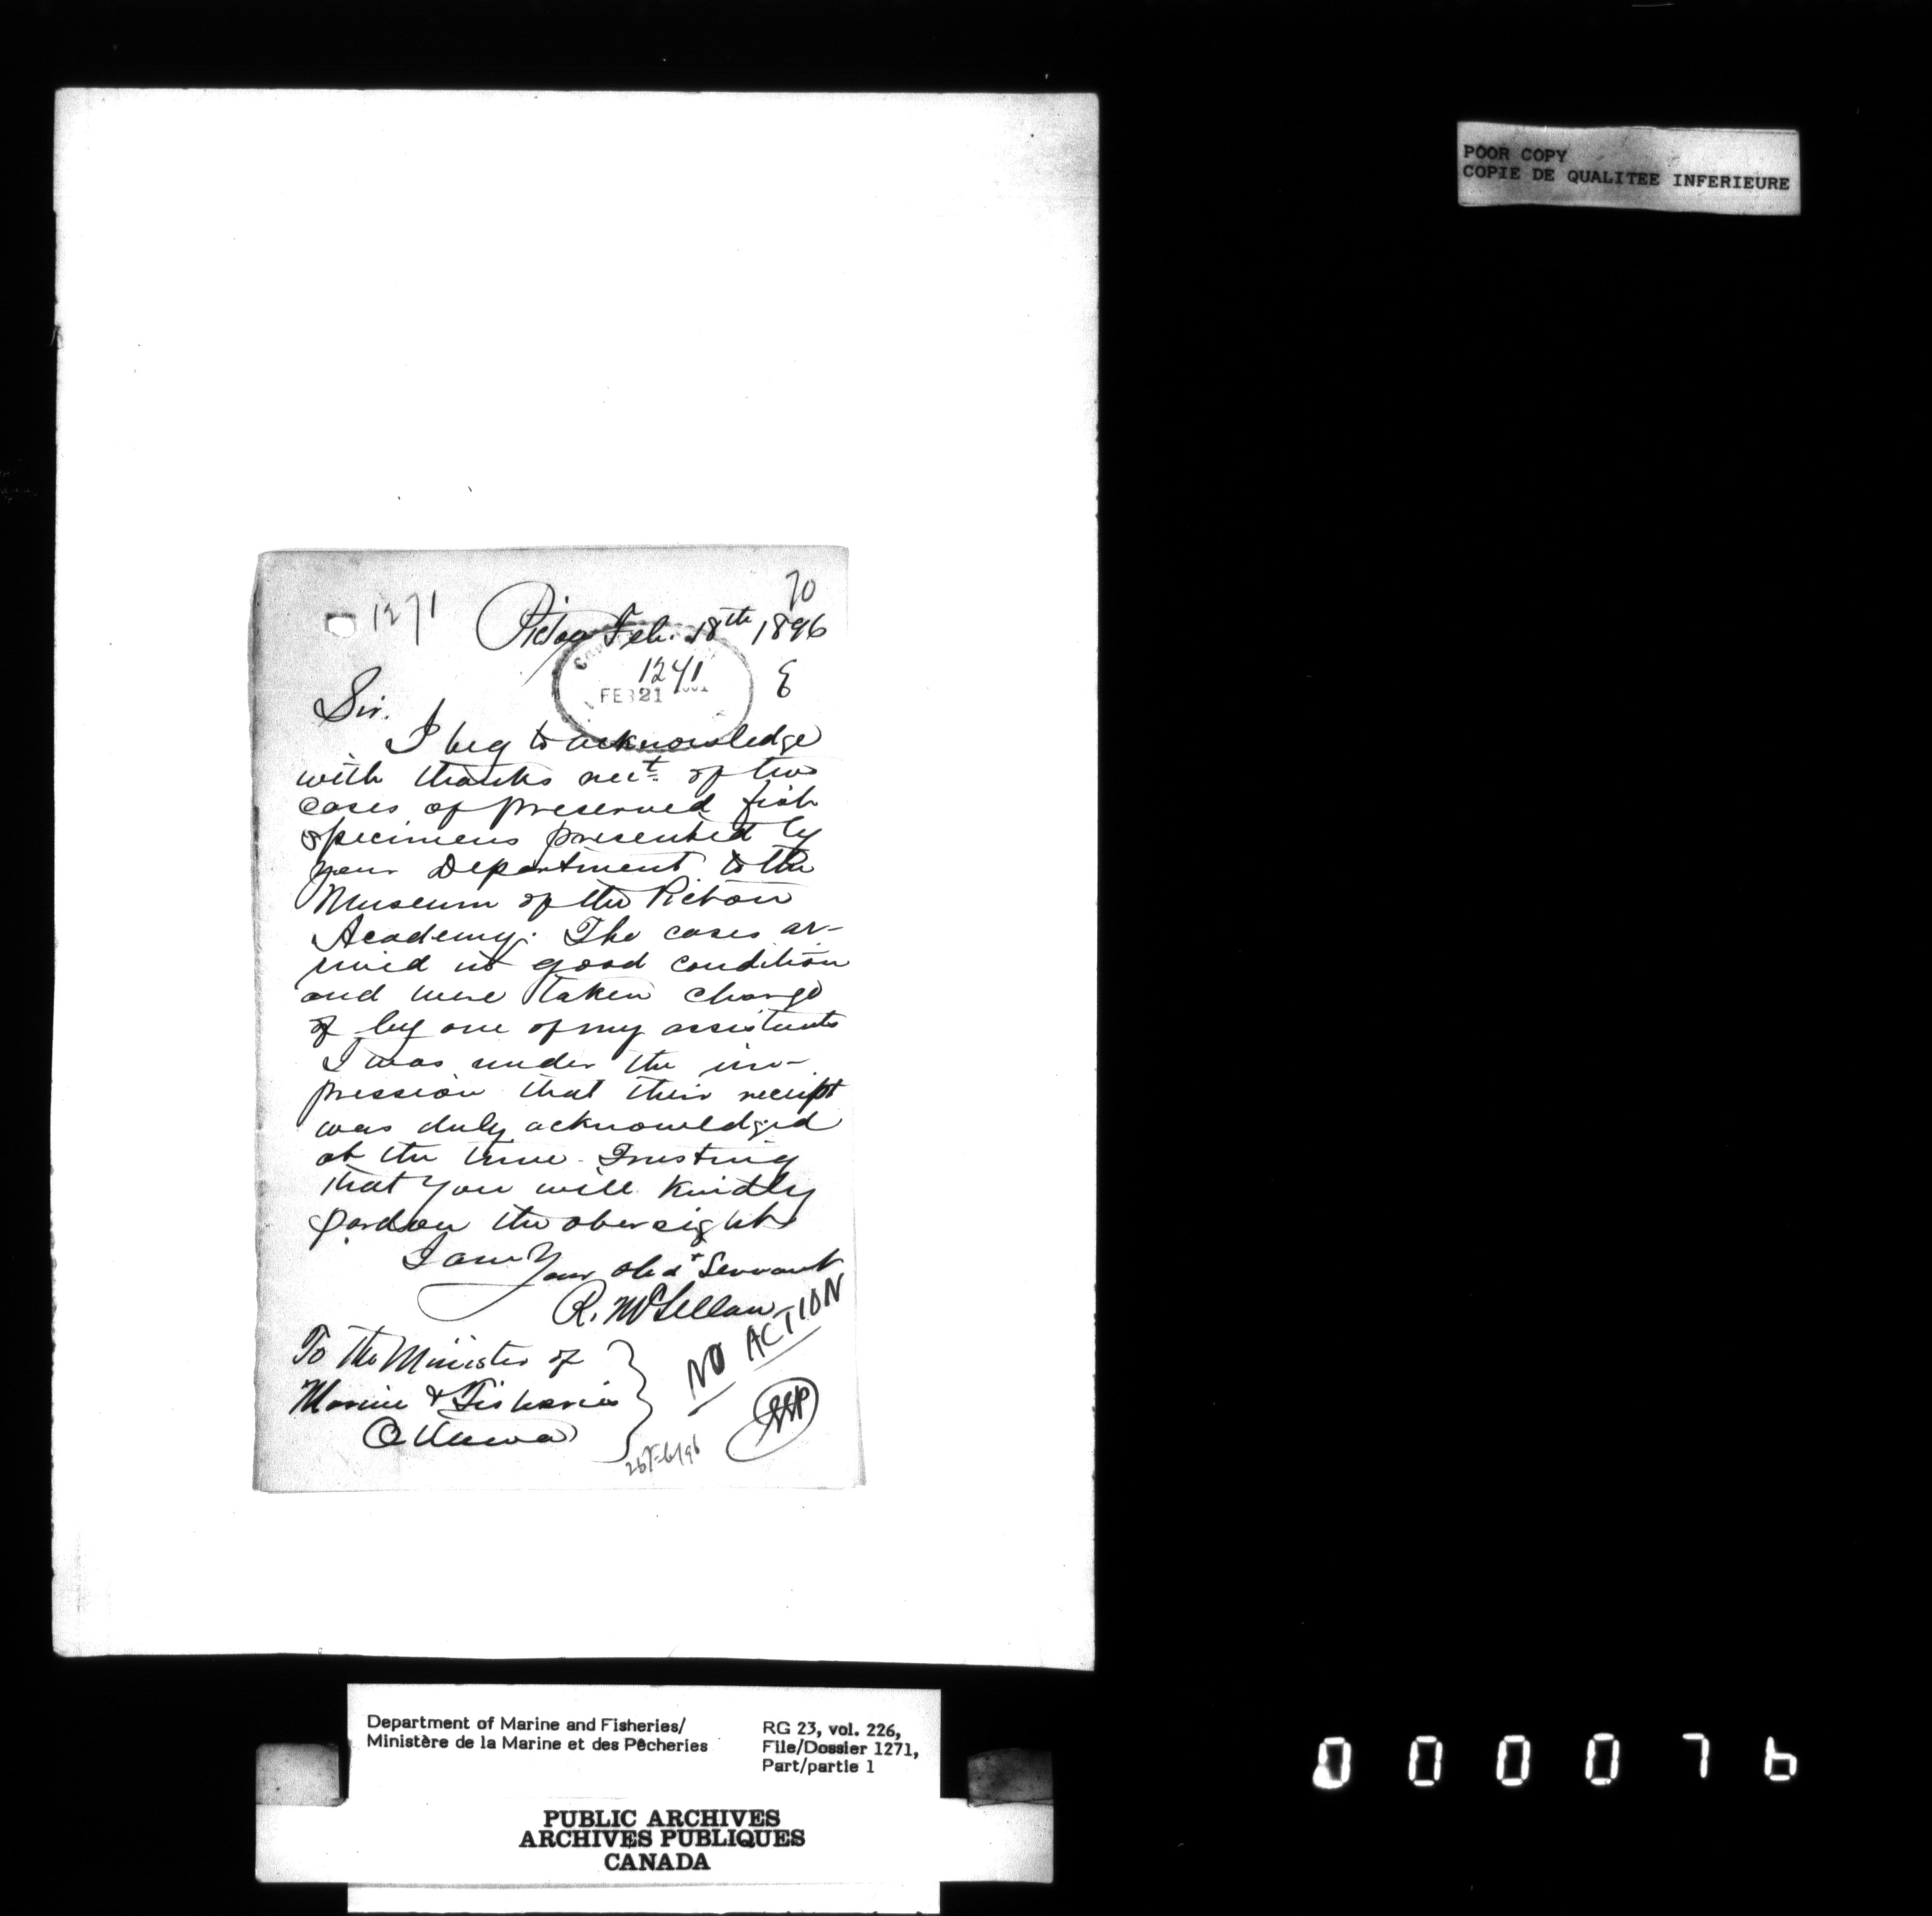 POOR COPY
COPIE DE QUALITEE INFERIEURE
70
1271
Pictou Feb. 18th, 1896
1241
FEB 21
E
Sir.
I beg to acknowledge
with thanks rect. of two
cases of preserved fish
specimens presented by
your Department to the
Museum of the Pictou
Academy. The cases ar-
rived in good condition
and were taken charge
of by one of my assistants
I was under the im-
pression that their receipt
was duly acknowledged
at the time. Trusting
that you will kindly
pardon the oversight
I am
Your obdt Servant
R. McLellan
To the Minister of
Marine & Fisheries
Ottawa
NO ACTION
26 Feb/96
Department of Marine and Fisheries/
Ministère de la Marine et des Pêcheries
RG 23, vol. 226,
File/Dossier 1271,
Part/partie 1
PUBLIC ARCHIVES
ARCHIVES PUBLIQUES
CANADA
000076